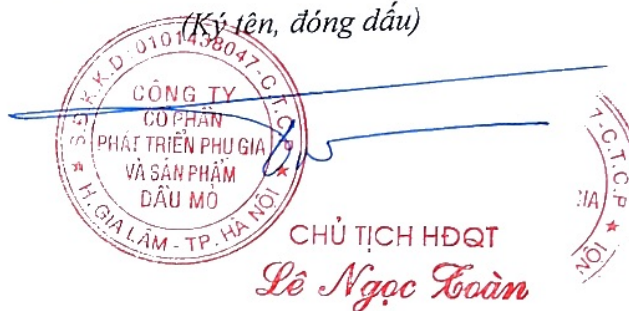 (Ký tên, đóng dấu)
S.Đ.K.K.D: 0101438047-C.T.C.P
CÔNG TY
CỔ PHẦN
PHÁT TRIỂN PHỤ GIA
VÀ SẢN PHẨM
DẦU MỎ
H. GIA LÂM - TP. HÀ NỘI
CHỦ TỊCH HĐQT
Lê Ngọc Toàn
7-C.T.C.P
GIA
NỘI